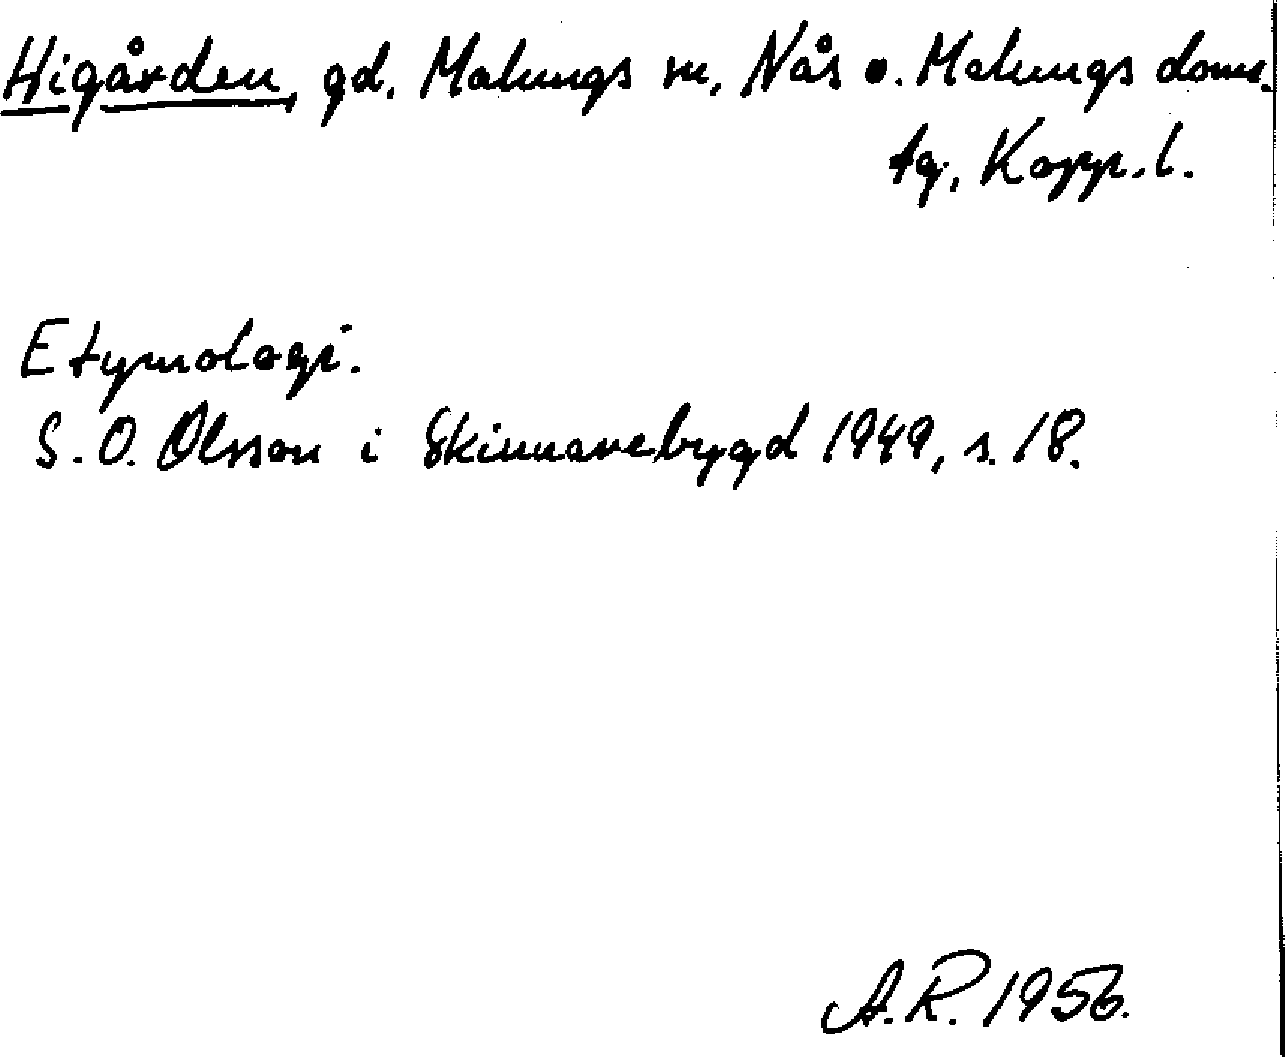 Higården, gd. Malungs sn, Nås o. Malungs doms.
tg, Kopp. l.
Etymologi.
S. O. Olsson i Skinnarebygd 1949, s. 18.
A. R. 1956.